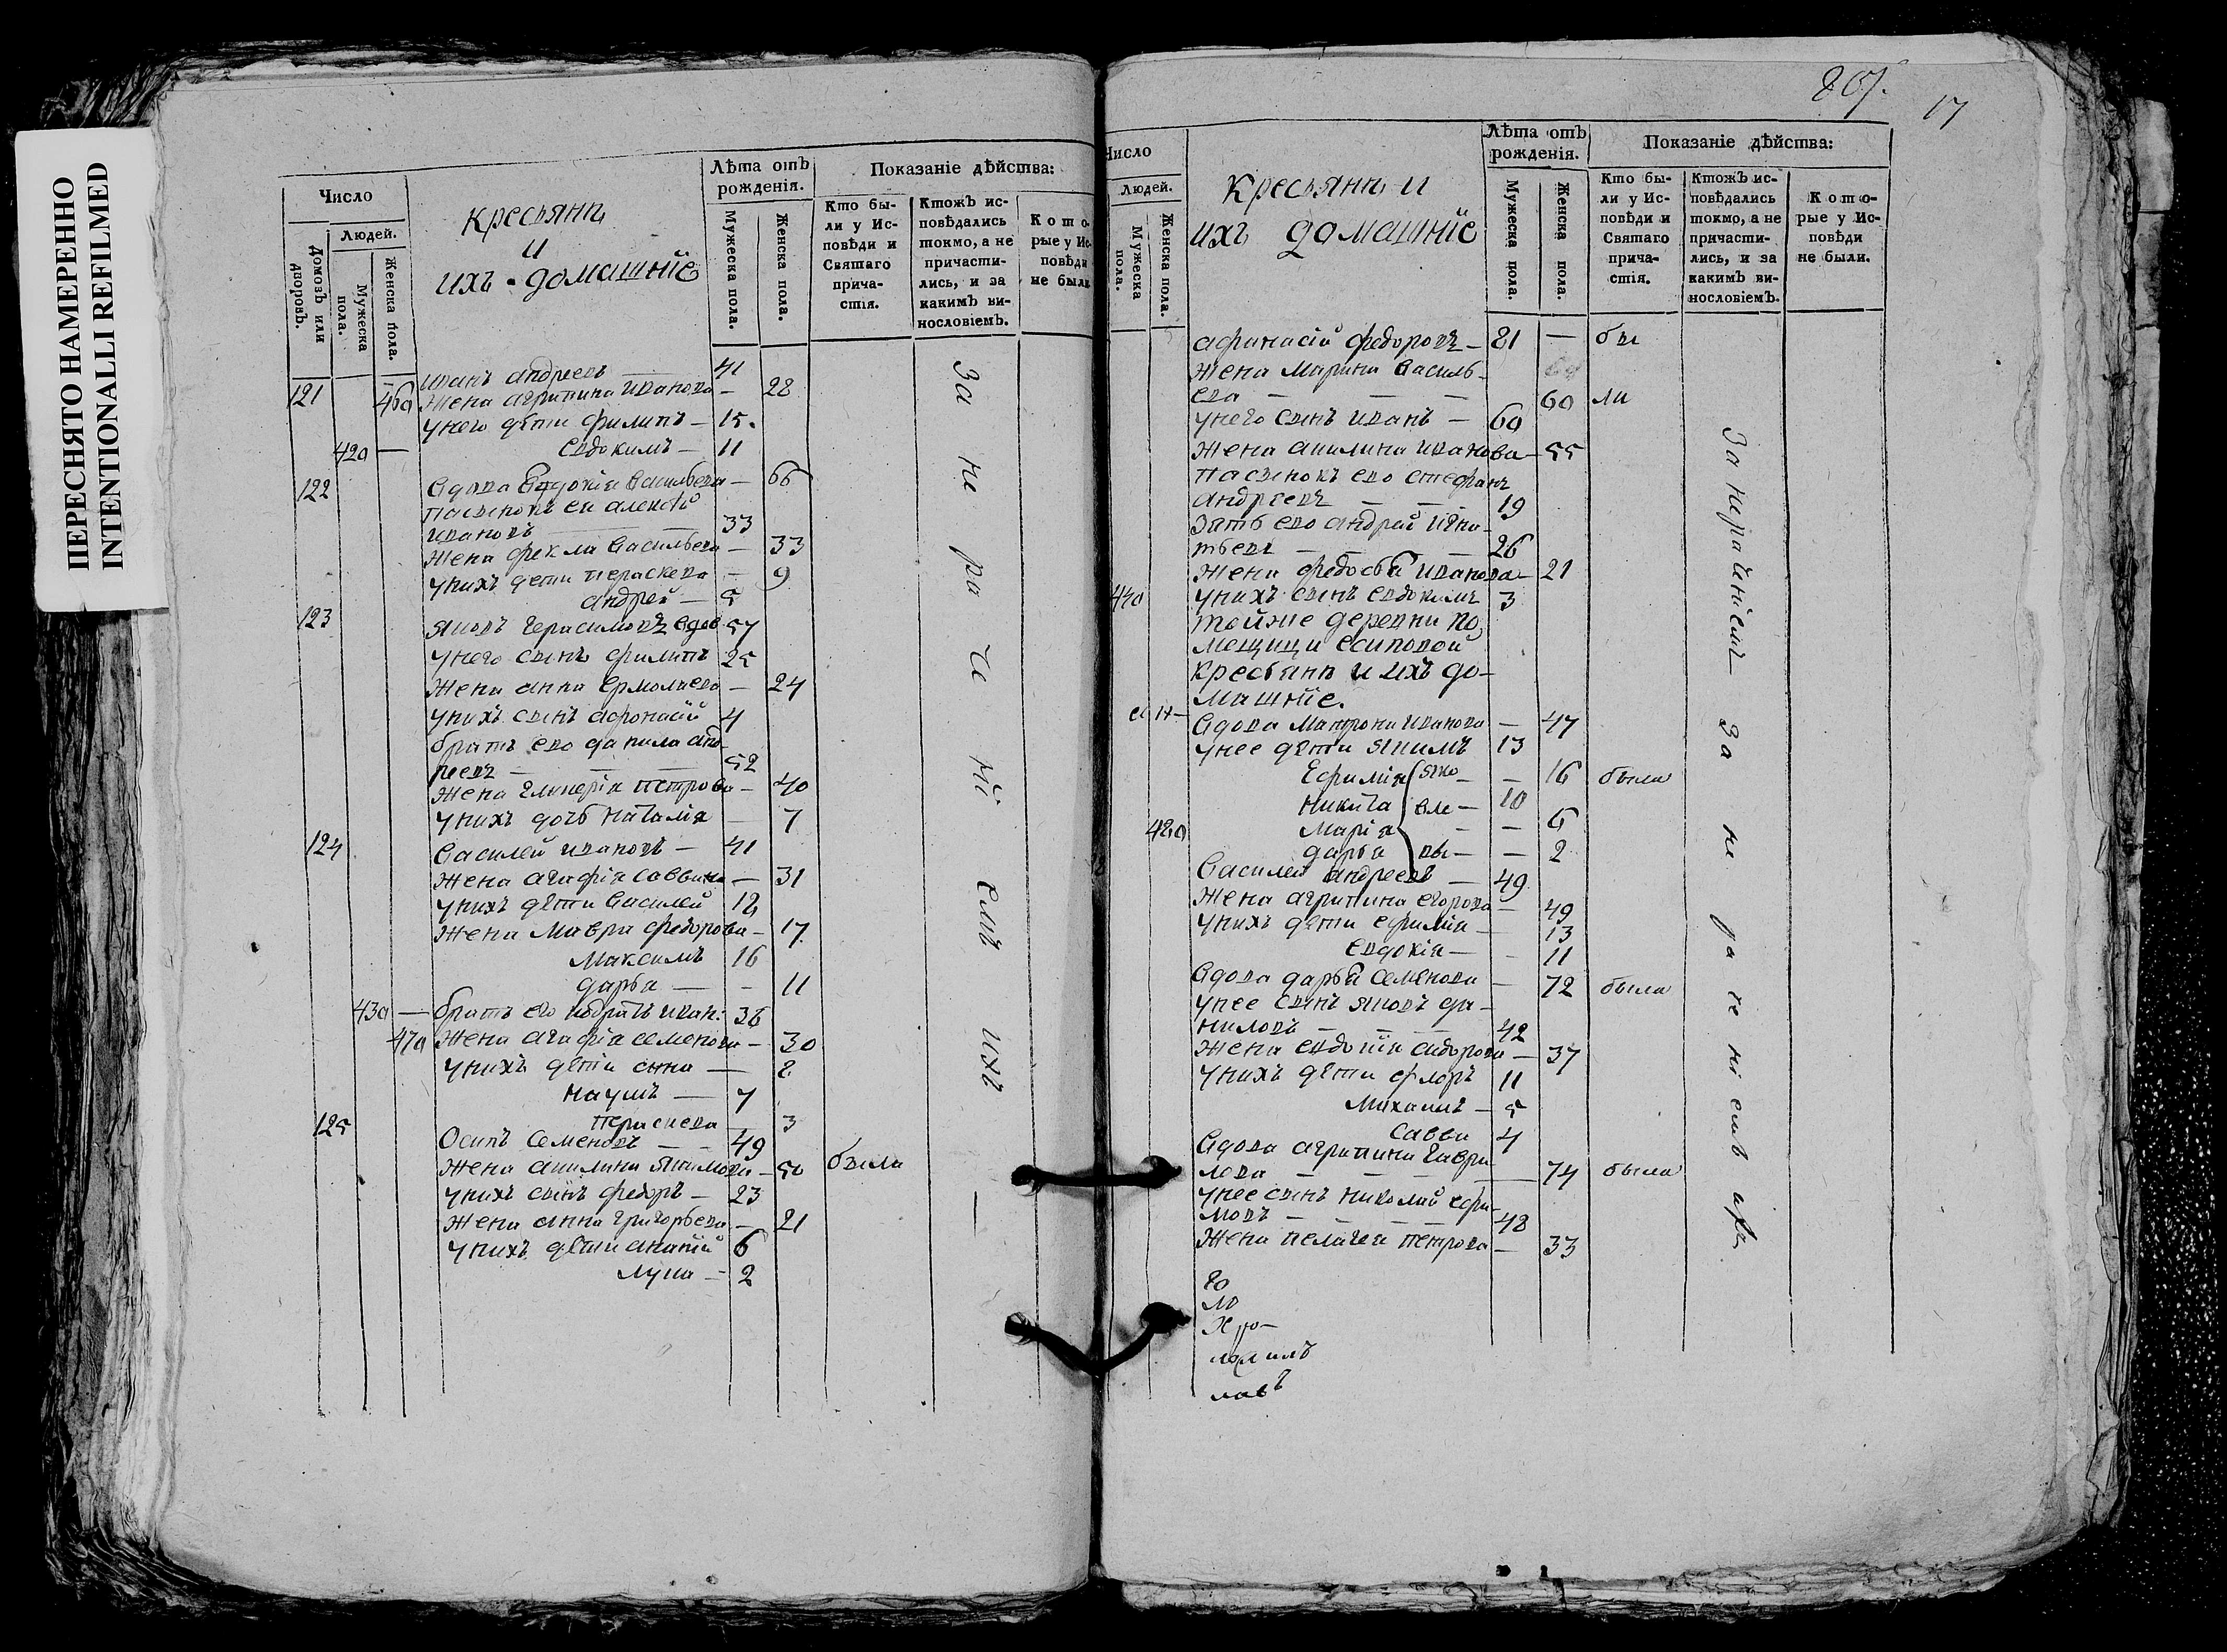 ПЕРЕСНЯТО НАМЕРЕННО
INTENTIONALLI REFILMED
Число
Людей.
Домовъ или дворовъ.
Мужеска пола.
Женска пола.
крестьянѣ
и
ихъ домашніе
Лѣта отъ рожденія.
Мужеска пола.
Женска пола.
Показаніе дѣйства:
Кто были у Исповѣди и Святаго причастія.
Ктожъ исповѣдались токмо, а не причастились, и за какимъ винословіемъ.
Которые у Исповѣди не были
иванъ андреевъ — 41
121 460 жена агрипина иванова — 28
унего дѣти филипъ — 15.
420 — евдокимъ — 11
122 вдова Евдокія васильева — 66
пасынокъ ея алексѣй
ивановъ — 33
жена фекла васильева — 33
унихъ дети пераскева — 9
андрей — 5
123 яковъ герасимовъ вдов 57
унего сынъ филипъ 25
жена анна ермолаева — 24
унихъ сынъ афонасій 4
братъ ево данила анд-
реевъ — 52
жена гликерія петрова — 40
унихъ дочь наталія — 7
124 василей ивановъ — 41
жена агафія саввина — 31
унихъ дѣти василей 12
жена мавра федорова — 17
максимъ 16
дарья — 11
430 — братъ его кодратъ иван: 36
470 жена агафія семенова — 30
унихъ дѣти анна — 8
наумъ — 7
пераскева 3
125 Осипъ семеновъ — 49
жена акилина якимова — 50 была
унихъ сынъ федоръ — 23
жена анна григорьева — 21
унихъ дѣти ананій 6
лука — 2
За не ра чи ні емъ ихъ —
207. 17
Число
Людей.
Мужеска пола.
Женска пола.
крестьянѣ и
ихъ домашніе
Лѣта отъ рожденія.
Мужеска пола.
Женска пола.
Показаніе дѣйства:
Кто были у Исповѣди и Святаго причастія.
Ктожъ исповѣдались токмо, а не причастились, и за какимъ винословіемъ.
Которые у Исповѣди не были.
афинасій федоровъ — 81 — бы
жена марина василь-
ева — 60 ли
унего сынъ иванъ — 60
жена акилина иванова — 55
пасынокъ ево стефанъ
андреевъ — 19
зять ево андрей игна-
тьевъ — 26
жена федосья иванова — 21
440 унихъ сынъ евдокимъ 3
тойже деревни по
мещици есиповой
крестьянѣ и ихъ до-
машніе.
вдова матрона иванова — 47
унее дѣти якимъ 13
Ефимія яко — 16 была
никита вле — 10
480 марія — 6
дарья вы — 2
василей андреевъ — 49
жена агрипина егорова — 49
унихъ дѣти ефимія — 13
евдокія — 11
вдова дарья семенова — 72 была
унее сынъ яковъ да-
ниловъ — 42
жена евдокія сидорова — 37
унихъ дѣти флоръ 11
михаилъ — 5
савва 4
вдова агрипина гаври
лова — 74 была
унее сынъ николай ефи-
мовъ — 48
жена пелагея петрова — 33
За нерачиніемъ За не ра че ні емъ ихъ